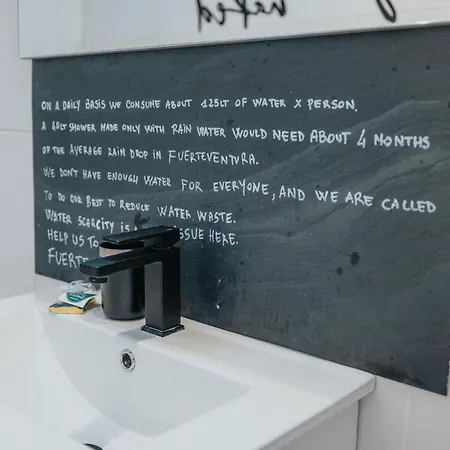 naked
ON A DAILY BASIS WE CONSUNE ABOUT 125LT OF WATER X PERSON.
A 40LT SHOWER MADE ONLY WITH RAIN WATER WOULD NEED ABOUT 4 MONTHS
OF THE AVERAGE RAIN DROP IN FUERTEVENTURA.
WE DON'T HAVE ENOUGH WATER FOR EVERYONE, AND WE ARE CALLED
TO DO OUR BEST TO REDUCE WATER WASTE.
WATER SCARCITY IS ISSUE HERE.
HELP US TO
FUERTE